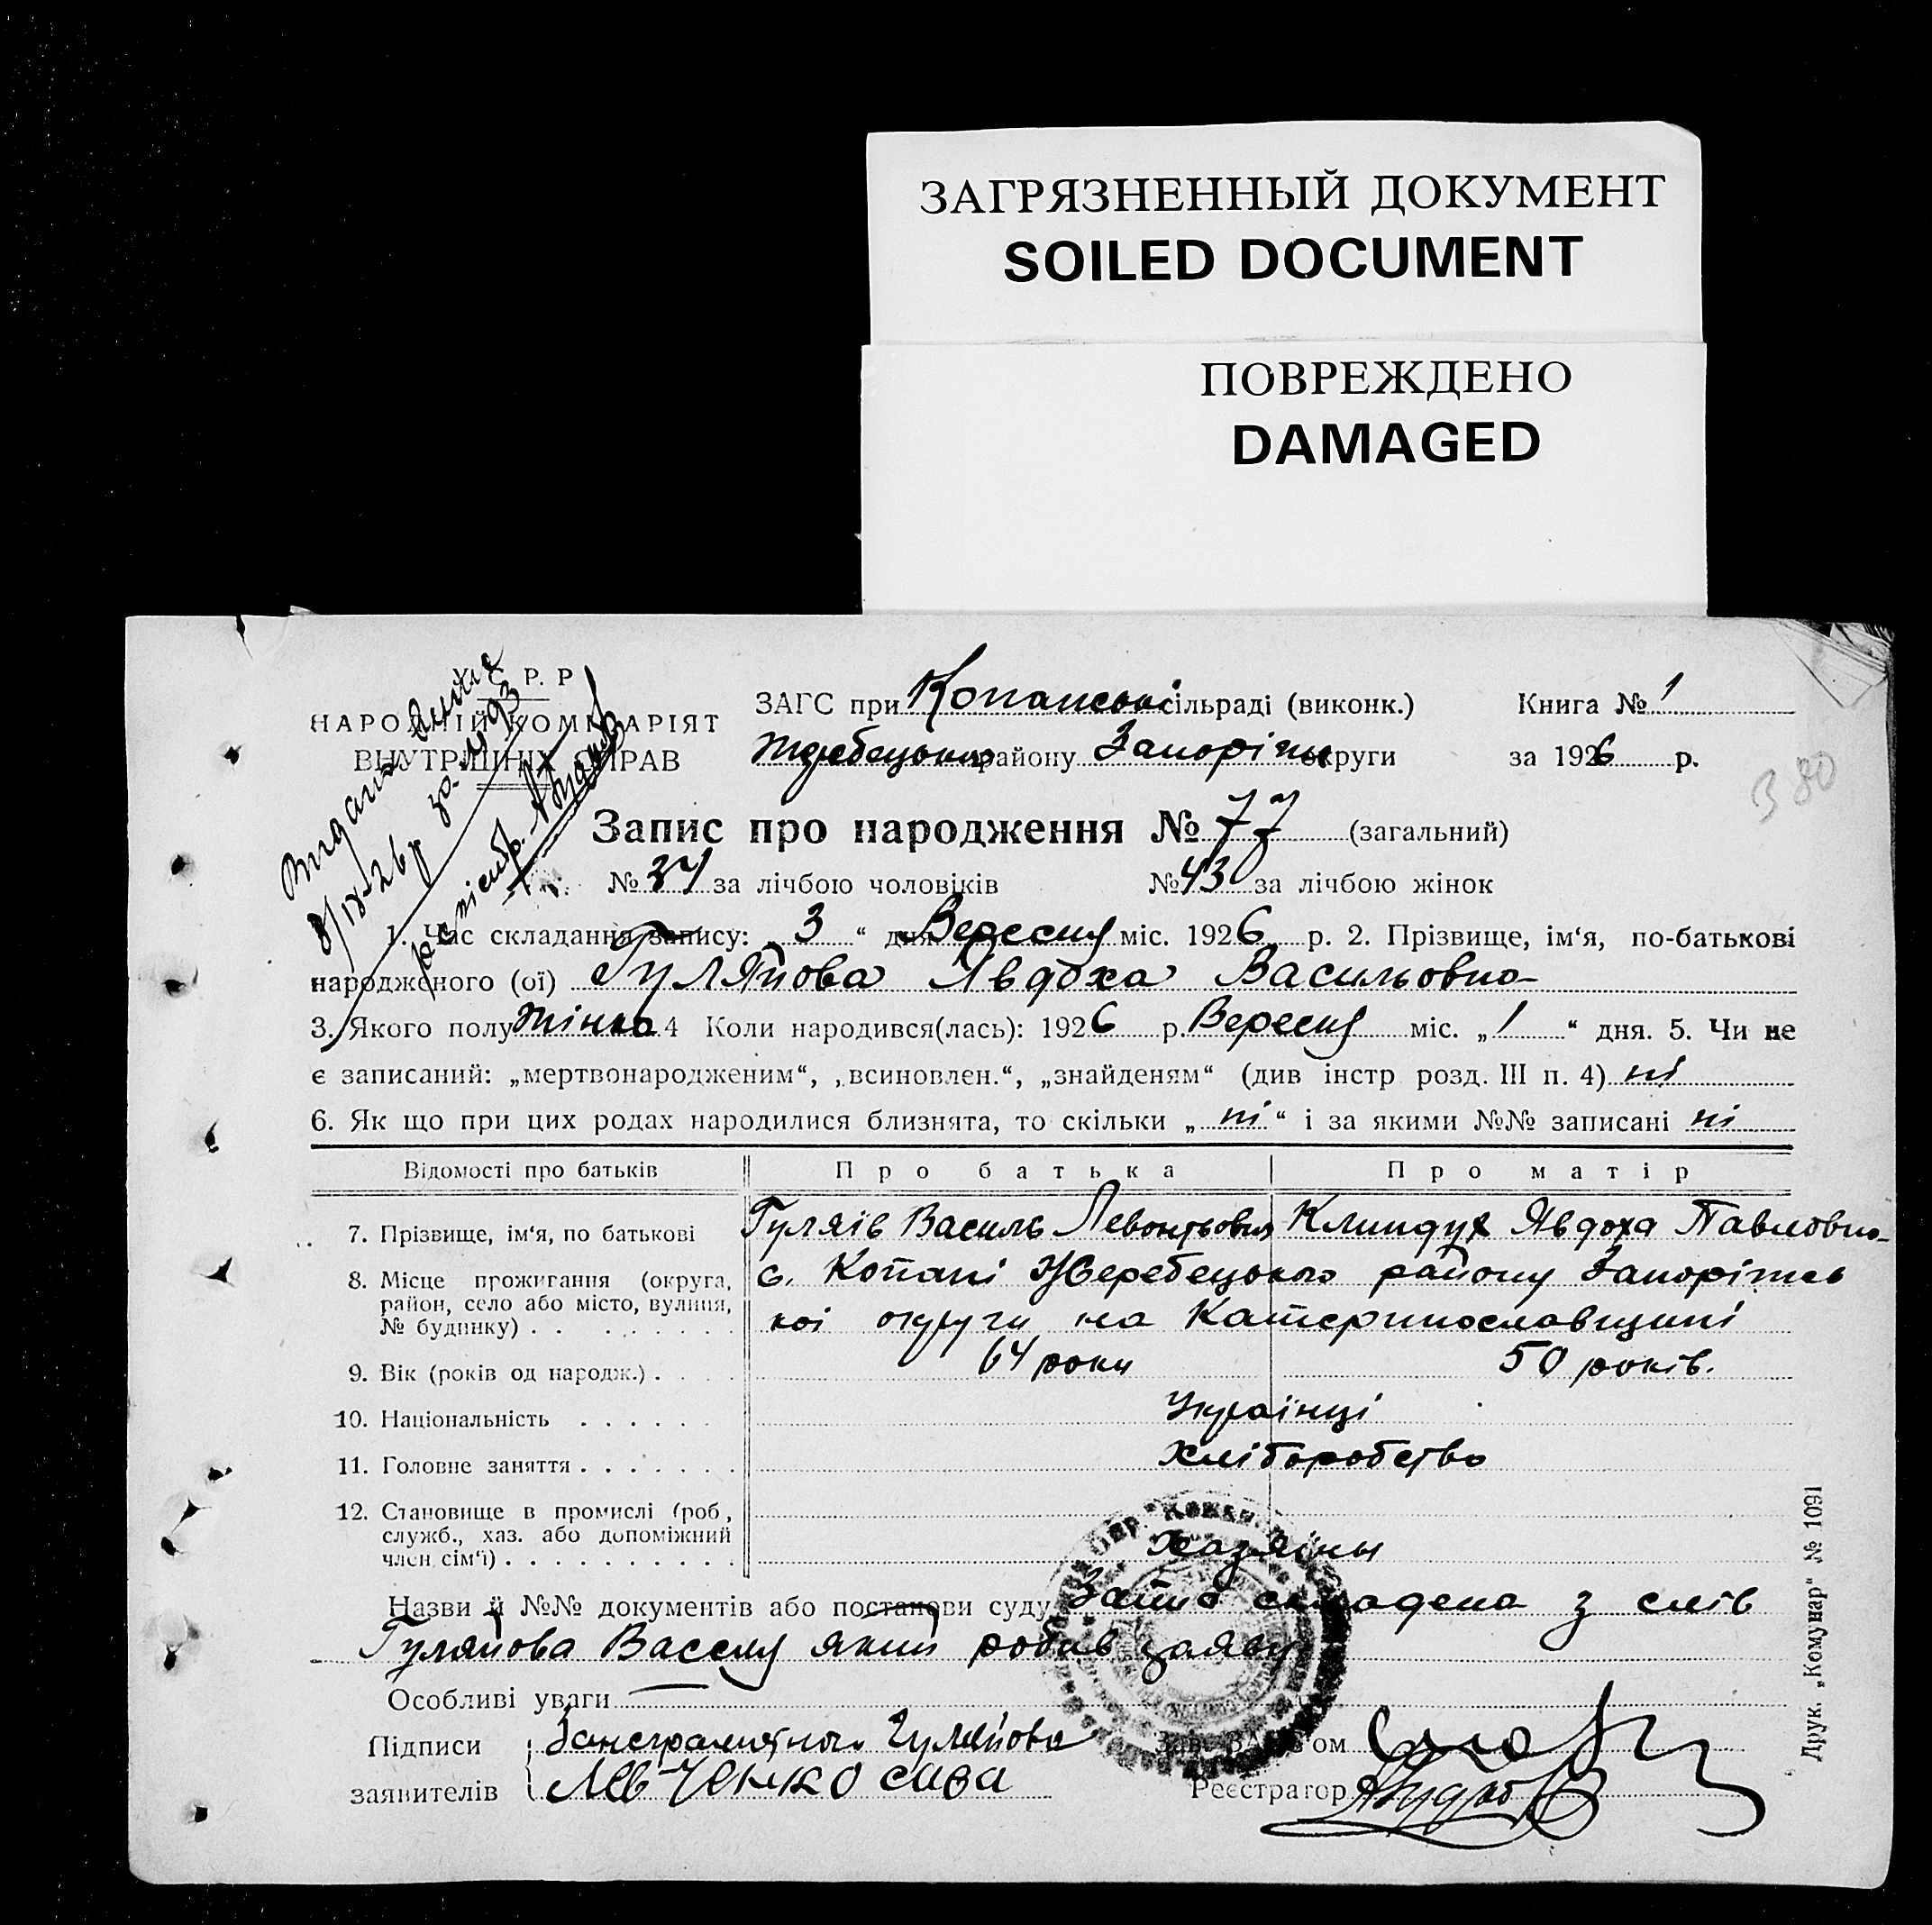 ЗАГРЯЗНЕННЫЙ ДОКУМЕНТ
SOILED DOCUMENT
ПОВРЕЖДЕНО
DAMAGED
С. Р. Р
НАРОДНІЙ КОМІСАРІЯТ
ВНУТРІШНІХ СПРАВ
ЗАГС при Копанські сільраді (виконк.) Книга № 1
Жеребецького району Запоріжж округи за 1926 р.
380
Запис про народження № 77 (загальний)
№ 34 за лічбою чоловіків № 43 за лічбою жінок
1. Час складання запису: „ 3 “ дня Вересня міс. 1926 р. 2. Прізвище, ім‘я, по-батькові
народженого (ої) Гуляйова Явдоха Васильовна
3. Якого полу жінка 4 Коли народився(лась): 1926 р. Вересня міс. „ 1 “ дня. 5. Чи не
є записаний: „мертвонародженим“, „всиновлен.“, „знайденям“ (див інстр розд. III п. 4) ні
6. Як що при цих родах народилися близнята, то скільки „ ні “ і за якими №№ записані ні
Відомості про батьків Про батька Про матір
7. Прізвище, ім‘я, по батькові Гуляів Василь Левонтьович Клиндух Явдоха Павловна
8. Місце прожигання (округа, район, село або місто, вулиця, № будинку) с. Копані Жеребецького району Запоріжсь
кої округи на Катеринославщині
9. Вік (років од народж.) 64 роки 50 років.
10. Національність Українці
11. Головне заняття Хліборобство
12. Становище в промислі (роб, служб., хаз. або допоміжний член сім‘ї) Хазяїни
Назви й №№ документів або постанови суду Запис складена з слів
Гуляйова Василя який робив заяву
Особливі уваги
Підписи заявителів Гуляйова
Левченко сава
Зав. ЗАГС‘ом
Реєстратор
Друк. „Комунар“ № 1091